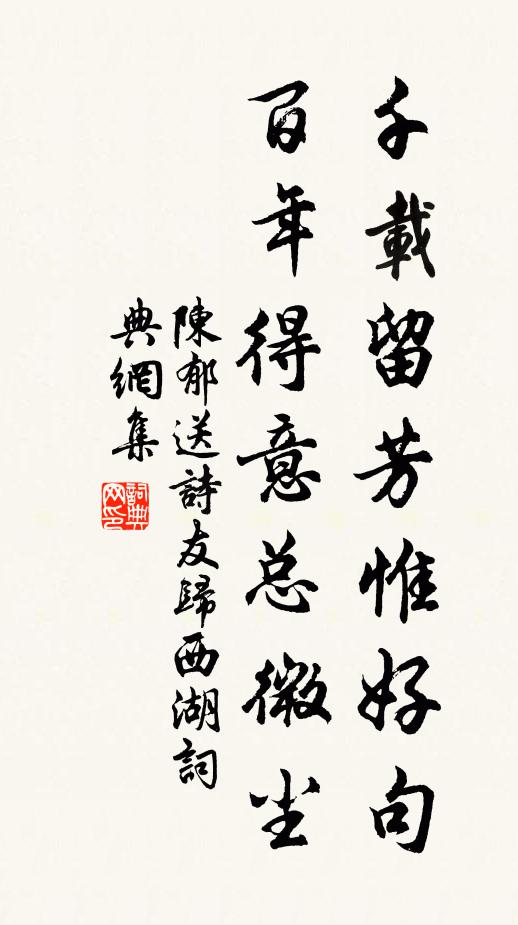 千載留芳惟好句
百年得意总微尘
陳郁送詩友歸西湖詞
典網集
詞典网印